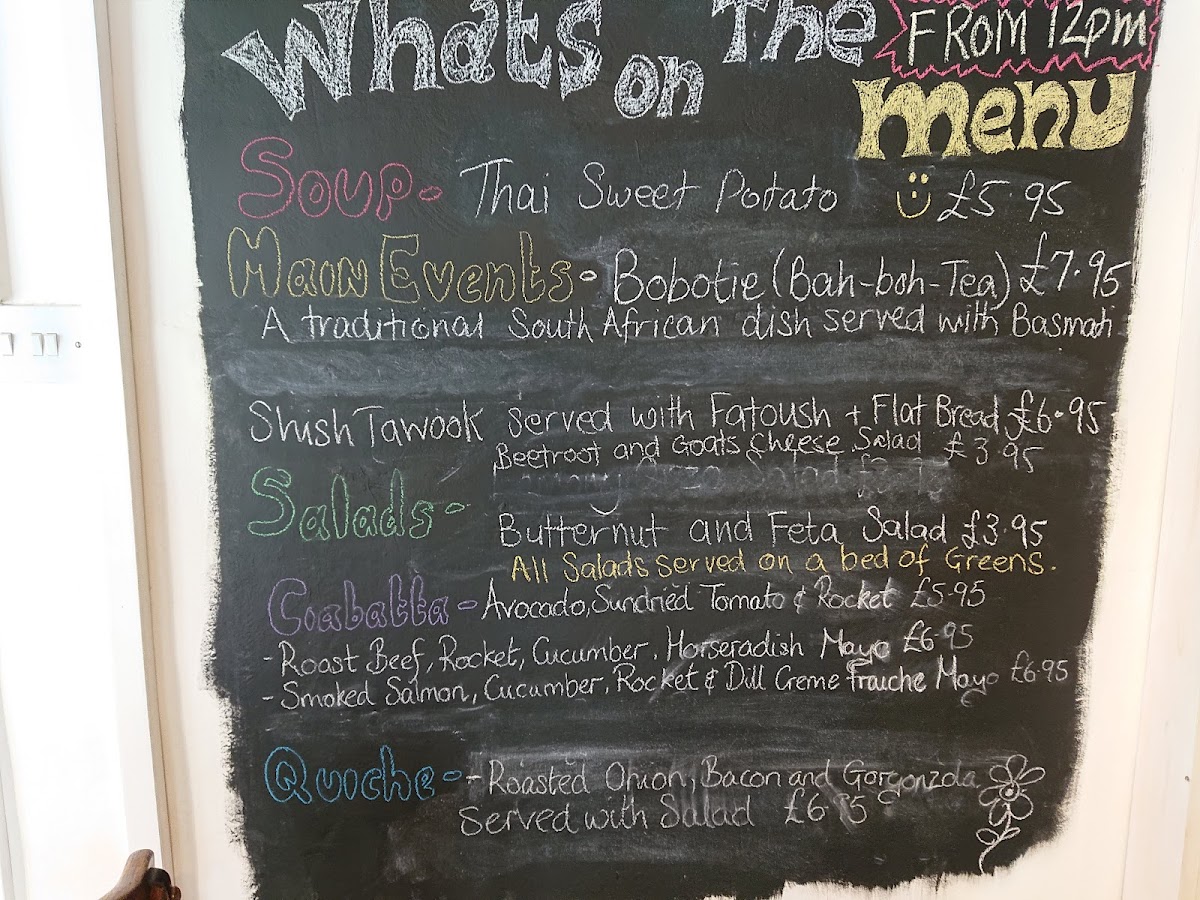 Whats on The menu
FROM 12pm
Soup - Thai Sweet Potato £5.95
Main Events - Bobotie (Bah-boh-Tea) £7.95
A traditional South African dish served with Basmati
Shish Tawook served with Fatoush + Flat Bread £6.95
Beetroot and Goats Cheese Salad £3.95
Salads - Butternut and Feta Salad £3.95
All Salads served on a bed of Greens.
Ciabatta - Avocado, Sundried Tomato & Rocket £5.95
- Roast Beef, Rocket, Cucumber, Horseradish Mayo £6.95
- Smoked Salmon, Cucumber, Rocket & Dill Creme Fraiche Mayo £6.95
Quiche - - Roasted Onion, Bacon and Gorgonzola
Served with Salad